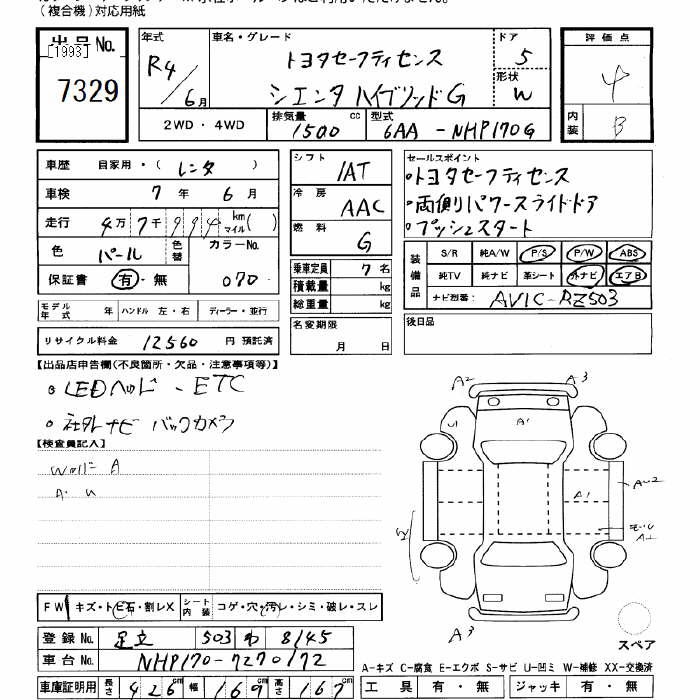 (複合機)対応用紙
出品No.
[1993]
7329
年式
R4/6月
車名・グレード
トヨタセーフティセンス
シエンタ ハイブリッドG
ドア
5
形状
W
評価点
4
内装
B
2WD・4WD
排気量
1500
cc
型式
6AA-NHP170G
車歴
自家用・(レンタ)
車検
7年6月
走行
4万7千994
km
マイル
( )
色
パール
色替
カラーNo.
070
保証書
有・無
モデル年式
年
ハンドル
左・右
ディーラー・並行
リサイクル料金
12560
円
預託済
シフト
IAT
冷房
AAC
燃料
G
乗車定員
7名
積載量
kg
総重量
kg
名変期限
月
日
セールスポイント
・トヨタセーフティセンス
・両側パワースライドドア
・プッシュスタート
装備品
S/R
純A/W
P/S
P/W
ABS
純TV
純ナビ
革シート
外ナビ
エアB
ナビ型番:
AVIC-RZ503
後日品
【出品店申告欄(不良箇所・欠品・注意事項等)】
・LEDヘッド - ETC
・社外ナビ バックカメラ
【検査員記入】
A・U
A2
A3
U1
A1
A1
A3
FW
キズ・トビ石・割レX
シート内装
コゲ・穴・汚レ・シミ・破レ・スレ
登録No.
足立
503
わ
8145
車台No.
NHP170-7270172
車庫証明用
長さ
426
cm
幅
169
cm
高さ
167
cm
スペア
A-キズ C-腐食 E-エクボ S-サビ U-凹ミ W-補修 XX-交換済
工具
有・無
ジャッキ
有・無